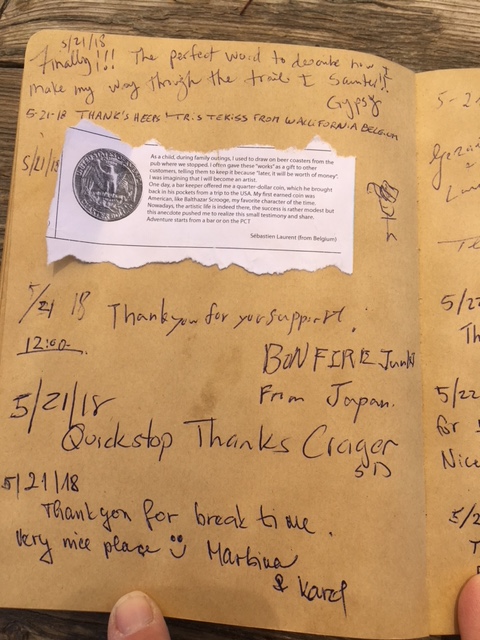 5/21/18
Finally!!! The perfect word to describe how I
make my way through the trail I Saunter!!
Gypsy
5-21-18 THANK'S HEEPS! TRIS TEKISS FROM WALLIFORNIA BELGIUM
5/21/18
As a child, during family outings, I used to draw on beer coasters from the
pub where we stopped. I often gave these "works"as a gift to other
customers, telling them to keep it because "later, it will be worth of money".
I was imagining that I will become an artist.
One day, a bar keeper offered me a quarter-dollar coin, which he brought
back in his pockets from a trip to the USA. My first earned coin was
American, like Balthazar Scrooge, my favorite character of the time.
Nowadays, the artistic life is indeed there, the success is rather modest but
this anecdote pushed me to realize this small testimony and share.
Adventure starts from a bar or on the PCT
Sébastien Laurent (from Belgium)
5/21 18 Thank you for your support!
12:00
BONFIRE Junki
From Japan.
5/21/18
Quickstop Thanks Crager
SD
5/21/18
Thank you for break time.
Very nice place Martina
& Karel
5-2
5/2
Th
5/22
for
Nice
5/2